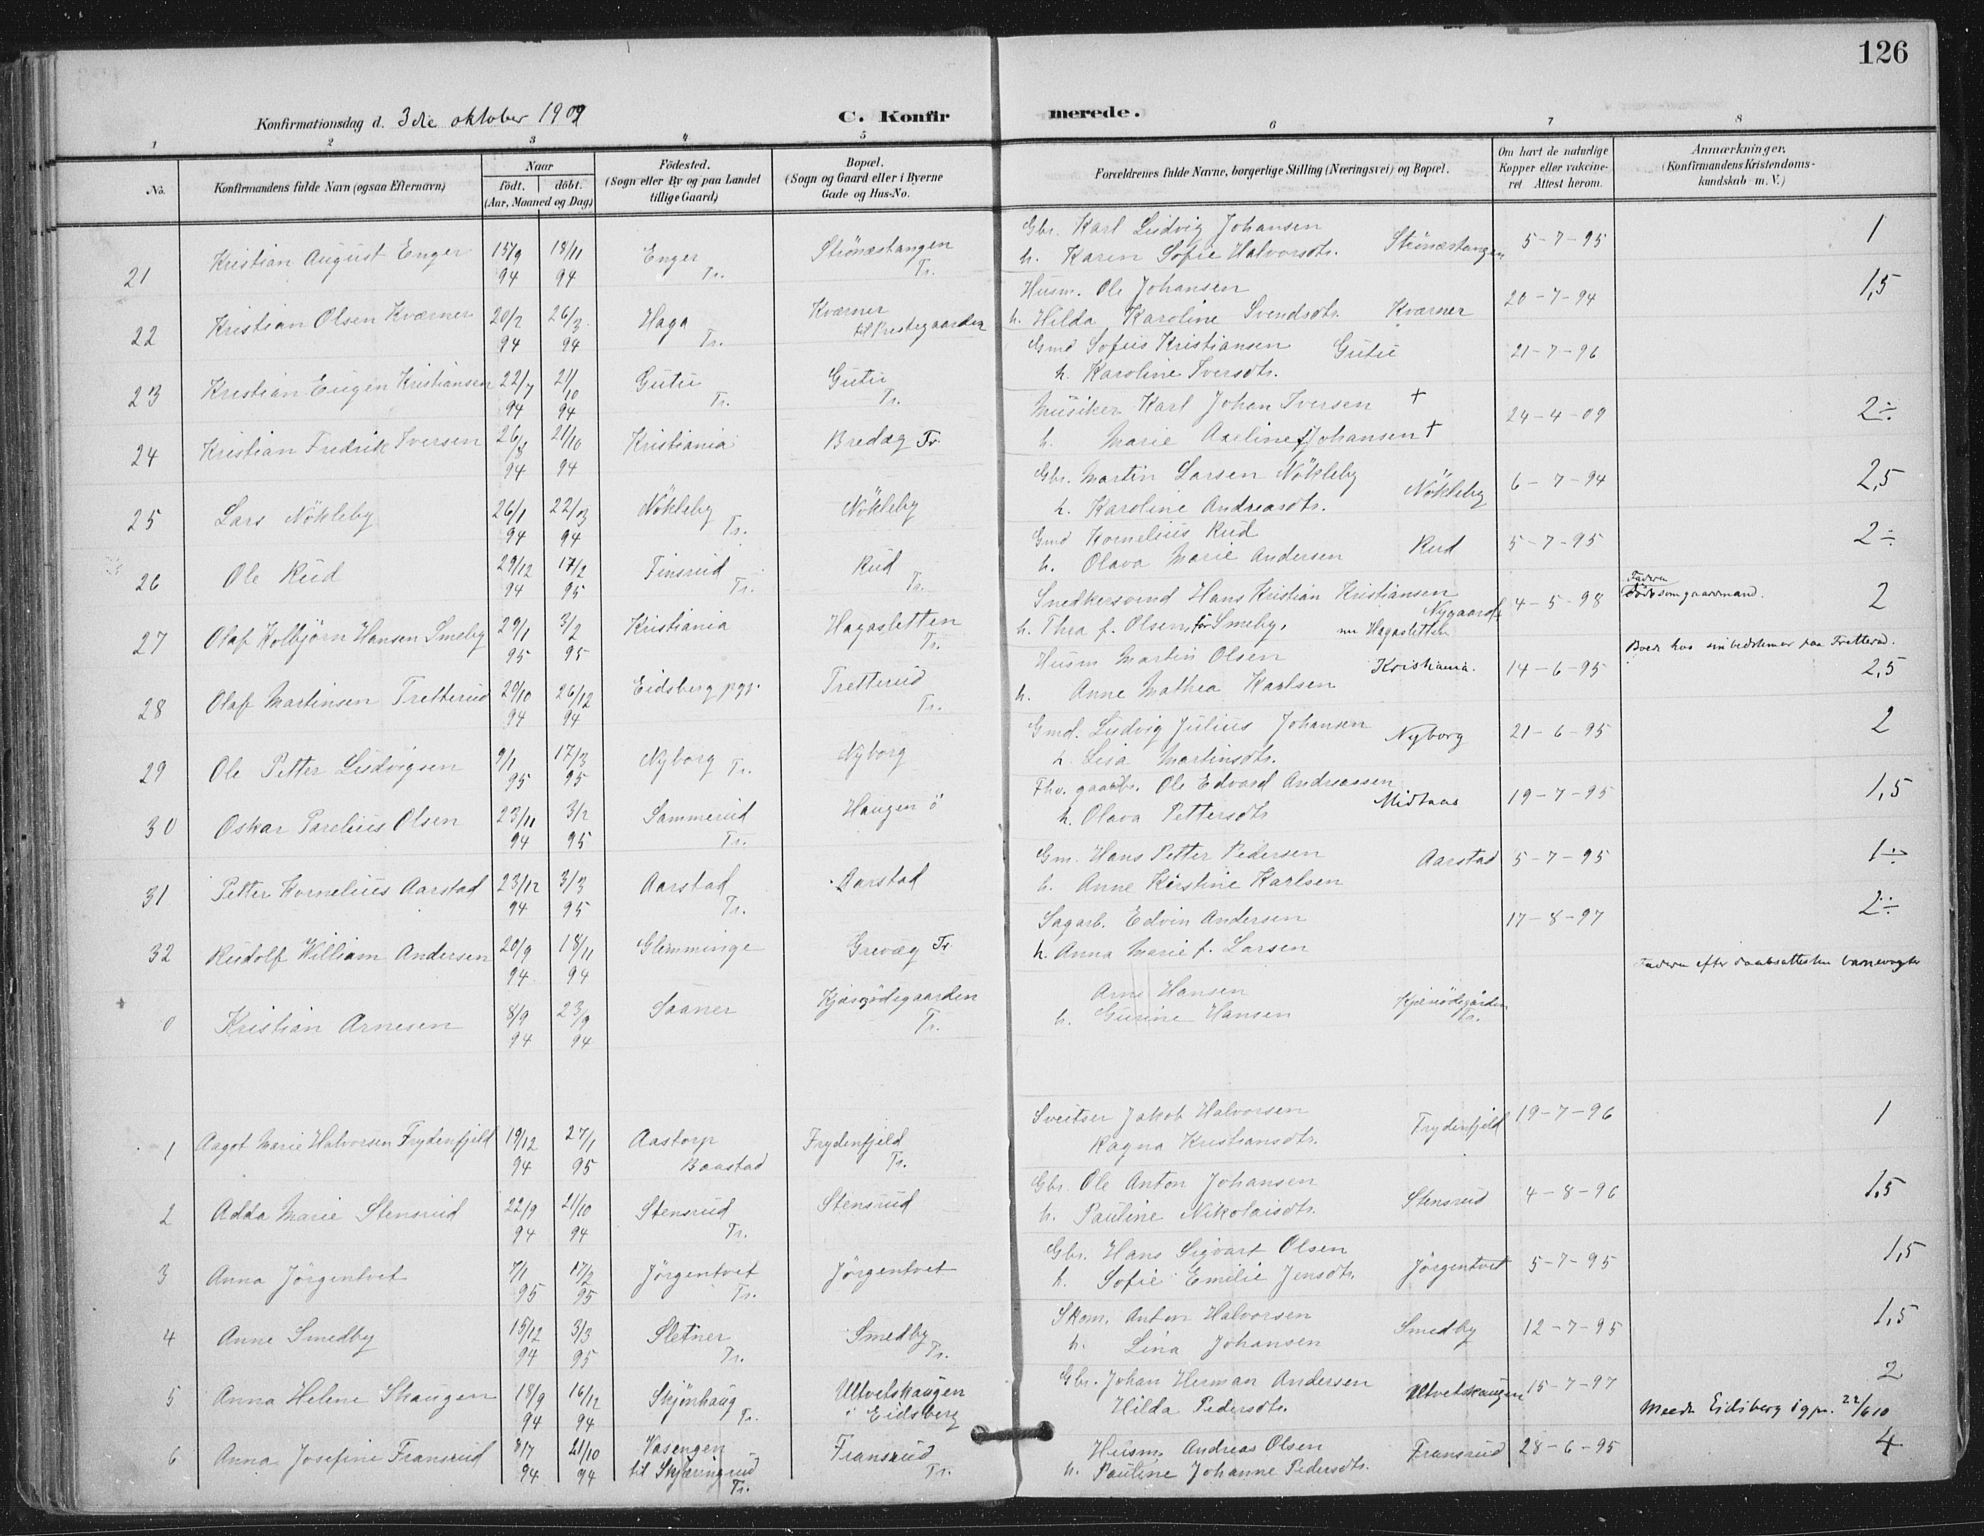 126
Konfirmationsdag d. 3die oktober 1909
C. Konfirmerede.
1 2 3 4 5 6 7 8
No.
Konfirmandens fulde Navn (ogsaa Efternavn)
Naar
født. døbt.
(Aar, Maaned og Dag)
Fødested.
(Sogn eller By og paa Landet
tillige Gaard)
Bopæl.
(Sogn og Gaard eller i Byerne
Gade og Hus-No.
Forældrenes fulde Navne, borgerlige Stilling (Næringsvei) og Bopæl.
Om havt de naturlige
Kopper eller vakcine-
ret. Attest herom.
Anmærkninger.
(Konfirmandens Kristendoms-
kundskab m. V.)
21 Kristian August Enger 15/9 94 18/11 94 Enger Tr. Strønæstangen Tr. Gbr. Karl Ludvig Johansen
h. Karen Sofie Halvorsdtr. Strønæstangen 5-7-95 1
22 Kristian Olsen Kværner 20/2 94 26/3 94 Haga Tr. Kværner til Prestegaarden Husm. Ole Johansen
h. Hilda Karoline Svendsdtr. Kværner 20-7-94 1,5
23 Kristian Eugen Kristiansen 22/7 94 21/10 94 Gutu Tr. Gutu Tr. Gmd Sofus Kristiansen Gutu
h. Karoline Iversdtr. 21-7-96
24 Kristian Fredrik Iversen 26/8 94 21/10 94 Kristiania Bredag Tr. Musiker Karl Johan Iversen +
h. Marie Axeline f. Johansen + 24-4-09 2÷
25 Lars Nökleby 26/1 94 22/3 94 Nökleby Tr. Nökleby Gbr. Martin Larsen Nökleby
h. Karoline Andreasdtr. Nökleby 6-7-94 2,5
26 Ole Rud 29/12 94 17/2 95 Finsrud Tr. Rud Tr. Gmd Kornelius Rud
h. Olava Marie Andersen Rud 5-7-95 2÷
27 Olaf Kolbjørn Hansen Smeby 29/1 95 3/2 95 Kristiania Hagasletten Tr. Snedkersvend Hans Kristian Kristiansen Nygaards
h. Thea f. Olsen, før Smeby, nu Hagasletten 4-5-98 Faderen død som gaardmand. 2
28 Olaf Martinsen Tretterud 29/10 94 26/12 94 Eidsberg pgj. Tretterud Tr. Husm Martin Olsen
h. Anne Mathea Karlsen Kristiania. 14-6-95 Boer hos sin bedstemor paa Tretterud. 2,5
29 Ole Petter Ludvigsen 9/1 95 17/3 95 Nyborg Tr. Nyborg Gmd. Ludvig Julius Johansen
h. Lisa Martinsdtr. Nyborg 21-6-95 2
30 Oskar Parelius Olsen 23/11 94 3/2 95 Sammerud Tr. Haugen ö Fhv. gaardbr. Ole Edvard Andreassen
h. Olava Pettersdtr Midtaas 19-7-95 1,5
31 Petter Kornelius Aarstad 23/12 94 3/3 95 Aarstad Tr. Aarstad Gm. Hans Petter Pedersen
h. Anne Kirstine Karlsen Aarstad 5-7-95 1÷
32 Rudolf William Andersen 20/9 94 18/11 94 Glimminge Grevæg Tr. Sagarb. Edvin Andersen
h. Anna Marie f. Larsen 17-8-97 2÷
0 Kristian Arnesen 8/9 94 23/9 94 Saaner Kjærsødegaarden Tr. Arne Hansen
h. Gurine Hansen Kjærsødegaarden Tr. Faderen efter daabsattesten banevogter
1 Aagot Marie Halvorsen Frydenfjeld 19/12 94 27/1 95 Aastorp Baastad Frydenfjeld Tr. Sveitser Jakob Halvorsen
Ragna Kristiansdtr. Frydenfjeld 19-7-96 1
2 Adda Marie Stensrud 22/9 94 21/10 94 Stensrud Tr. Stensrud Gbr. Ole Anton Johansen
h. Pauline Nikolaisdtr. Stensrud 4-8-96 1,5
3 Anna Jörgentvet 7/1 95 17/2 95 Jörgentvet Tr. Jörgentvet Gbr. Hans Sigvart Olsen
h. Sofie Emilie Jensdtr. Jörgentvet 5-7-95 1,5
4 Anne Smedby 15/12 94 3/3 95 Sletner Tr. Smedby Tr. Skom. Anton Halvorsen
h. Lina Johansen Smedby 12-7-95 1,5
5 Anna Helene Skaugen 18/9 94 16/12 94 Skjønhaug Tr. Ultvetskaugen i Eidsberg Gbr. Johan Herman Andersen
Hilda Pedersdtr. Ultvetskaugen 15-7-97 2
Meedr Eidsberg sgpr. 22/6 10
6 Anna Josefine Fransrud 8/7 94 21/10 94 Vasengen til Skjæringrud Tr. Fransrud Tr. Husm. Andreas Olsen
h. Pauline Johanne Pedersdtr. Fransrud 28-6-95 4